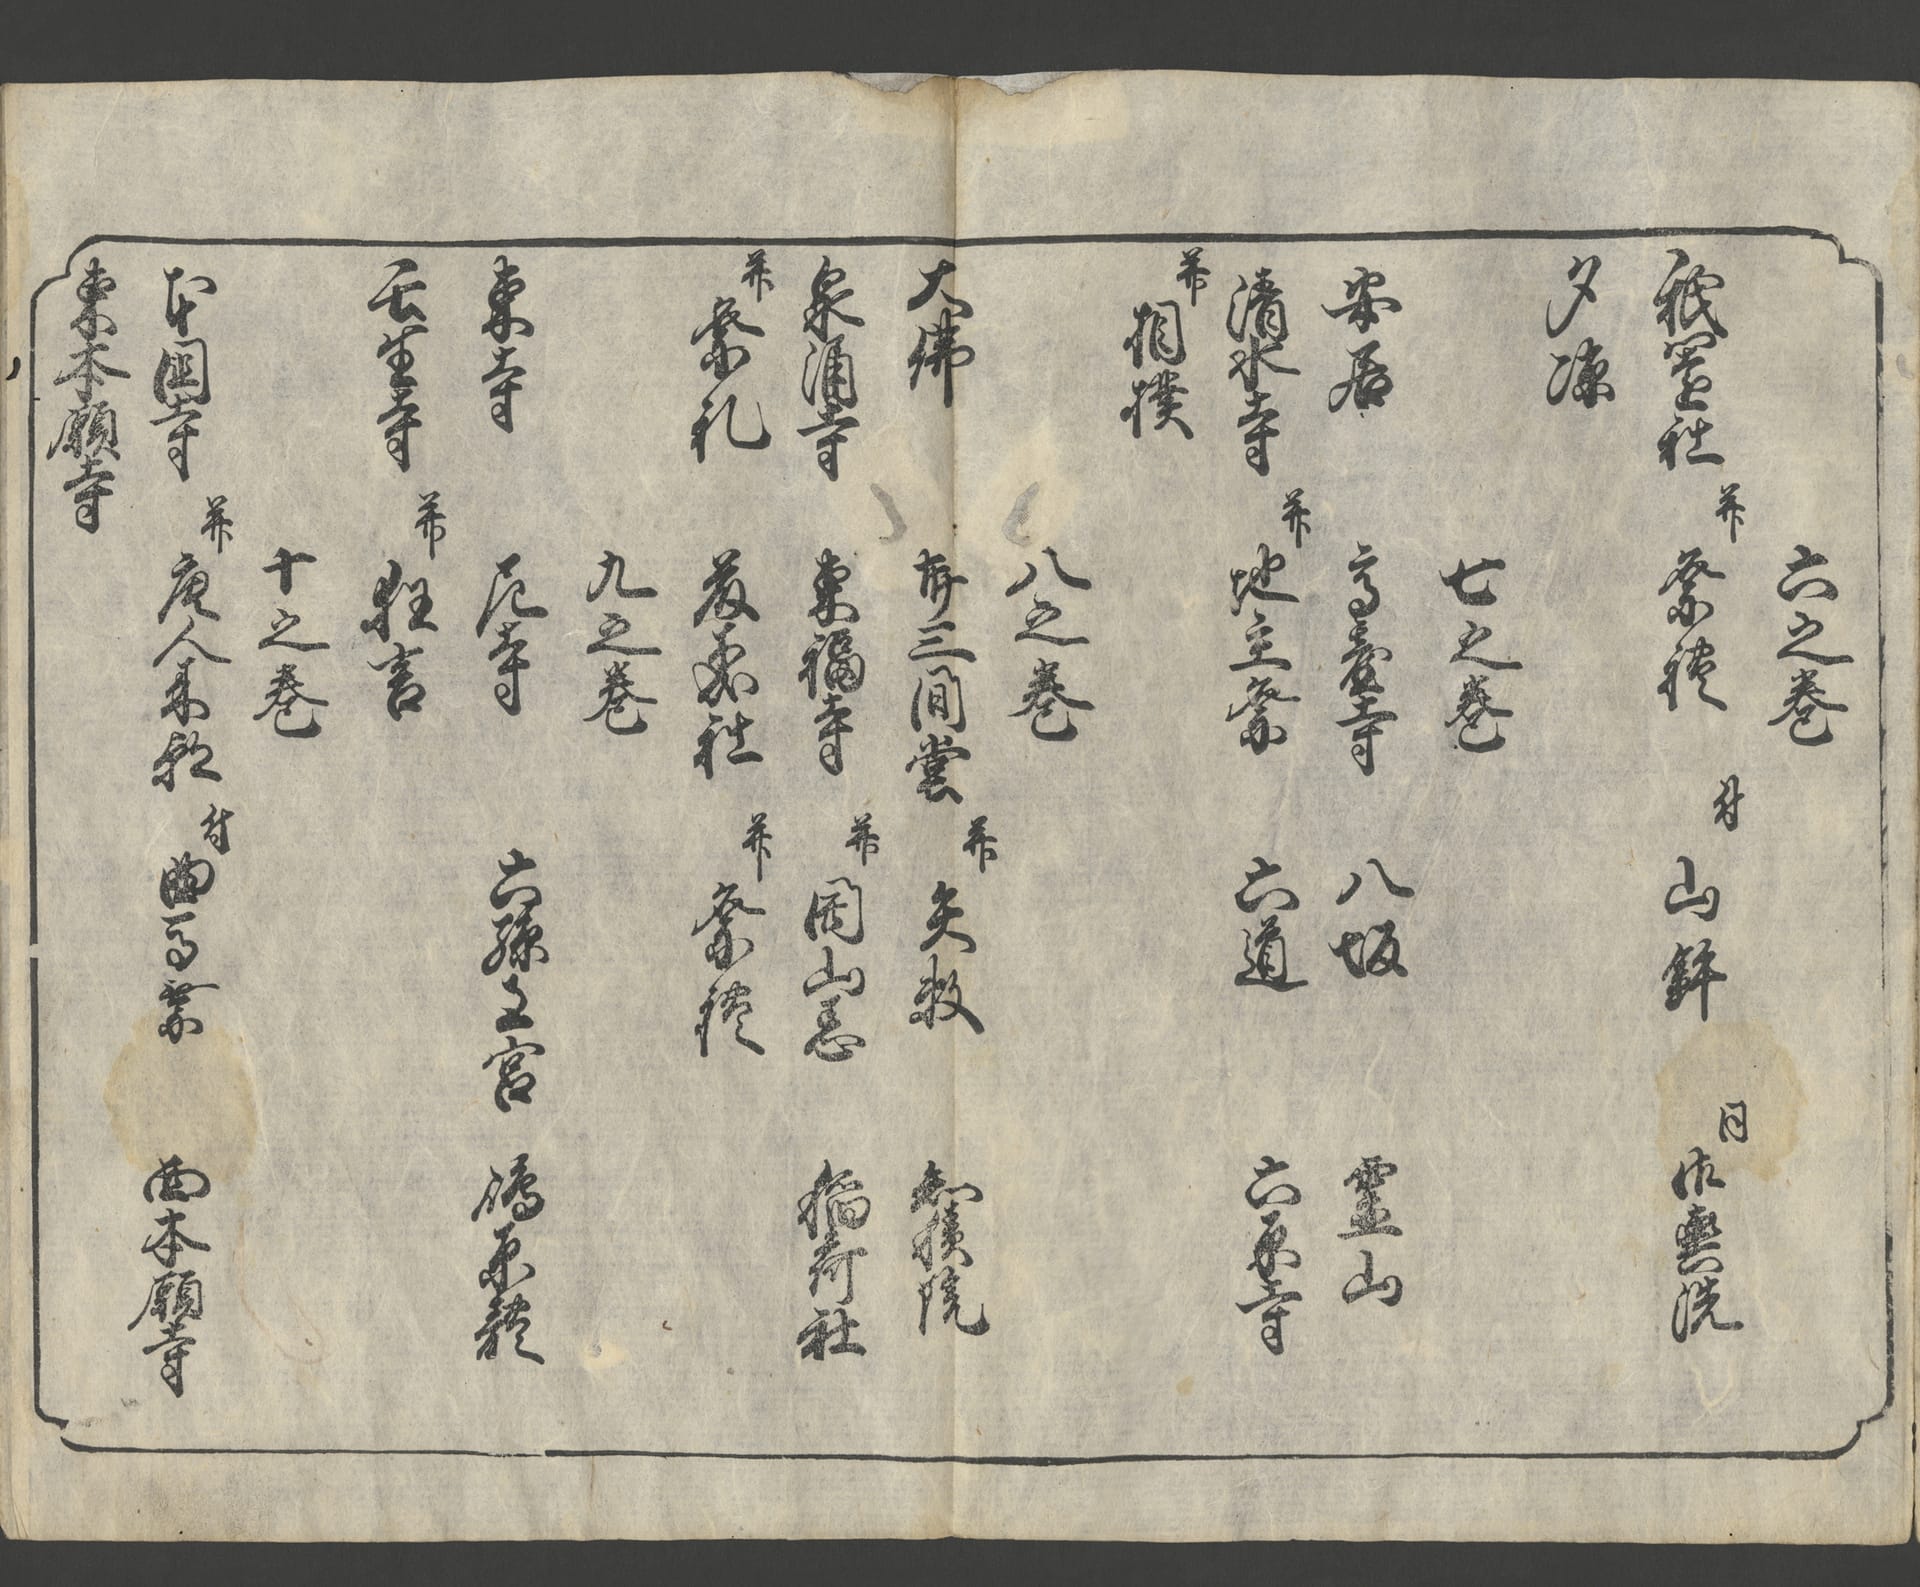 六之巻
祇園社 并祭礼 同山鉾 同御輿洗
夕涼
七之巻
安居 高臺寺 八坂 霊山
清水寺 并地主祭 六道 六原寺
并相撲
八之巻
大佛 并三間堂 并矢数 知積院
泉涌寺 東福寺 并開山忌 稲荷社
并祭礼 藤森社 并祭礼
九之巻
東寺 尼寺 六孫王宮 嶋原躰
壬生寺 并狂言
十之巻
本国寺 并唐人来朝 付曲馬業 西本願寺
東本願寺